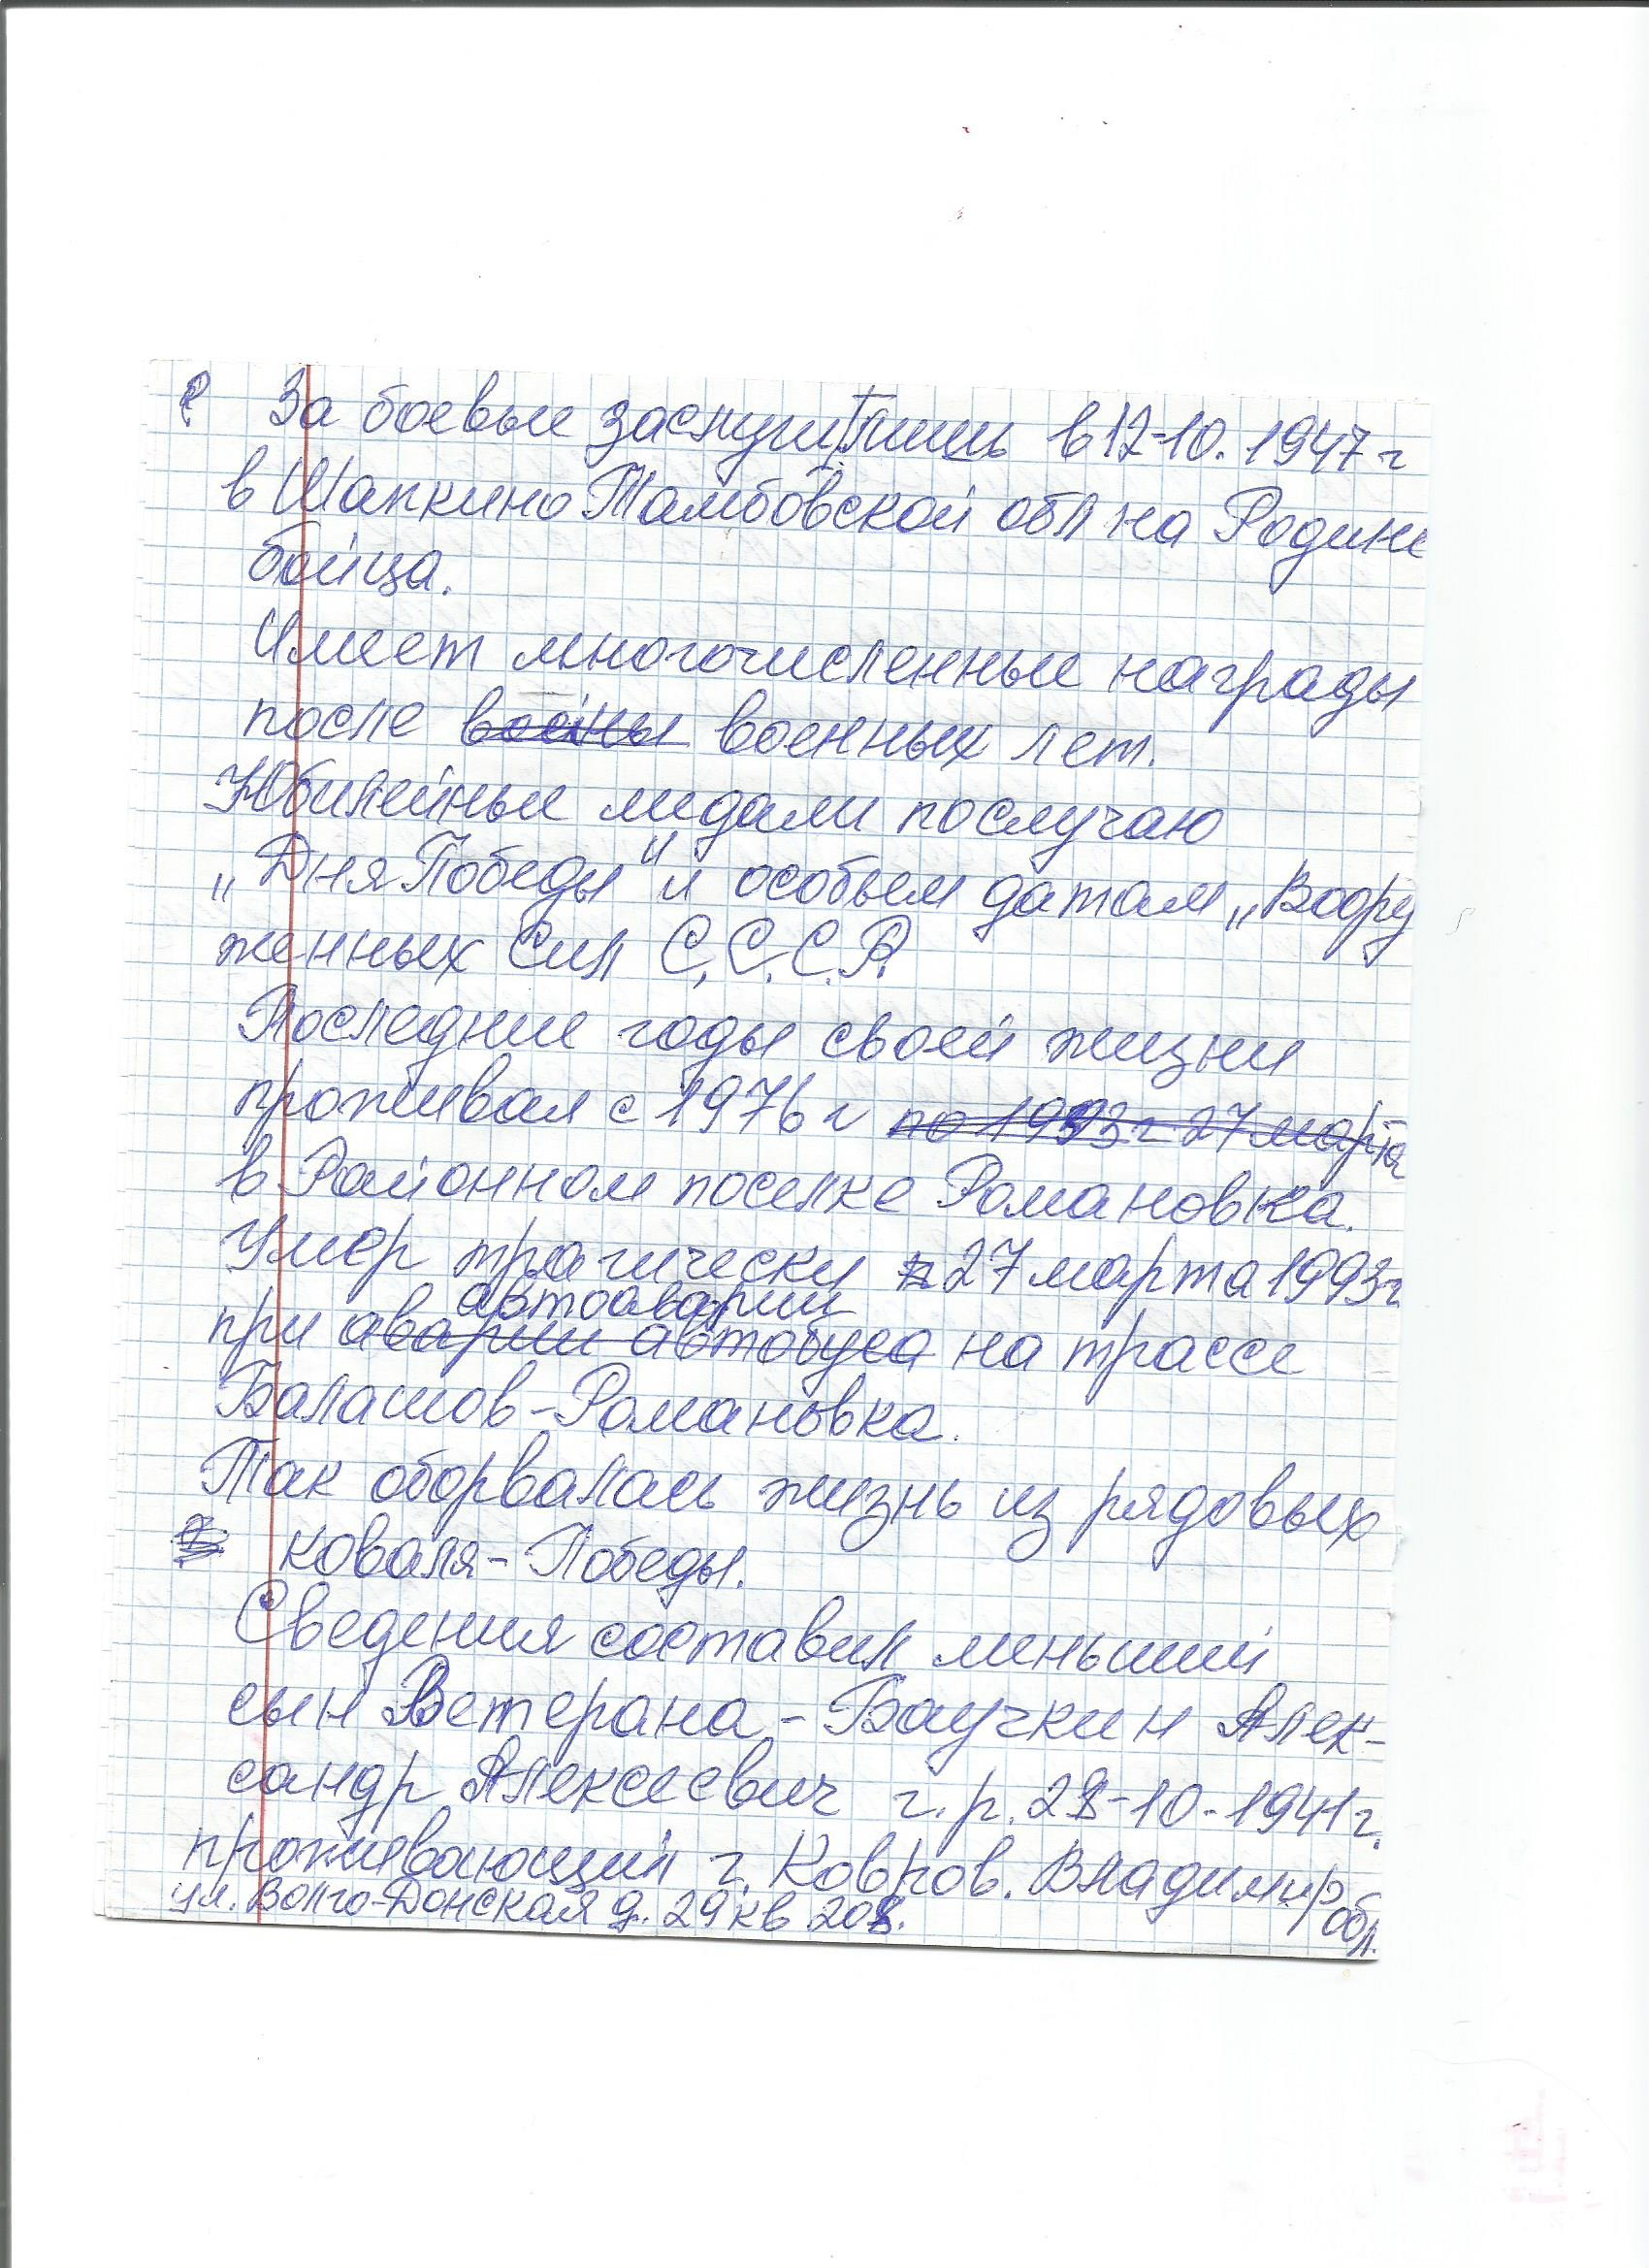 За боевые заслуги лишь в 17-10. 1947 г
в Шапкино Тамбовской обл на Родине
бойца.
Имеет многочисленные награды
после войны военных лет.
Юбилейные медали послучаю
„Дня Победы" и особым датам „Воору
женных Сил С.С.С.Р.
Последние годы своей жизни
проживал с 1976 г по 1993 г 27 марта
в Районном поселке Романовка.
Умер трагически 27 марта 1993 г
автоаварии
при аварии автобуса на трассе
Балашов-Романовка.
Так оборвалась жизнь из рядовых
коваля-Победы.
Сведения составил меньший
сын Ветерана - Баучкин Алек-
сандр Алексеевич г.р. 28-10-1941 г.
проживающий г. Ковров. Владимир обл.
ул. Волго-Донская д. 29 кв 208.